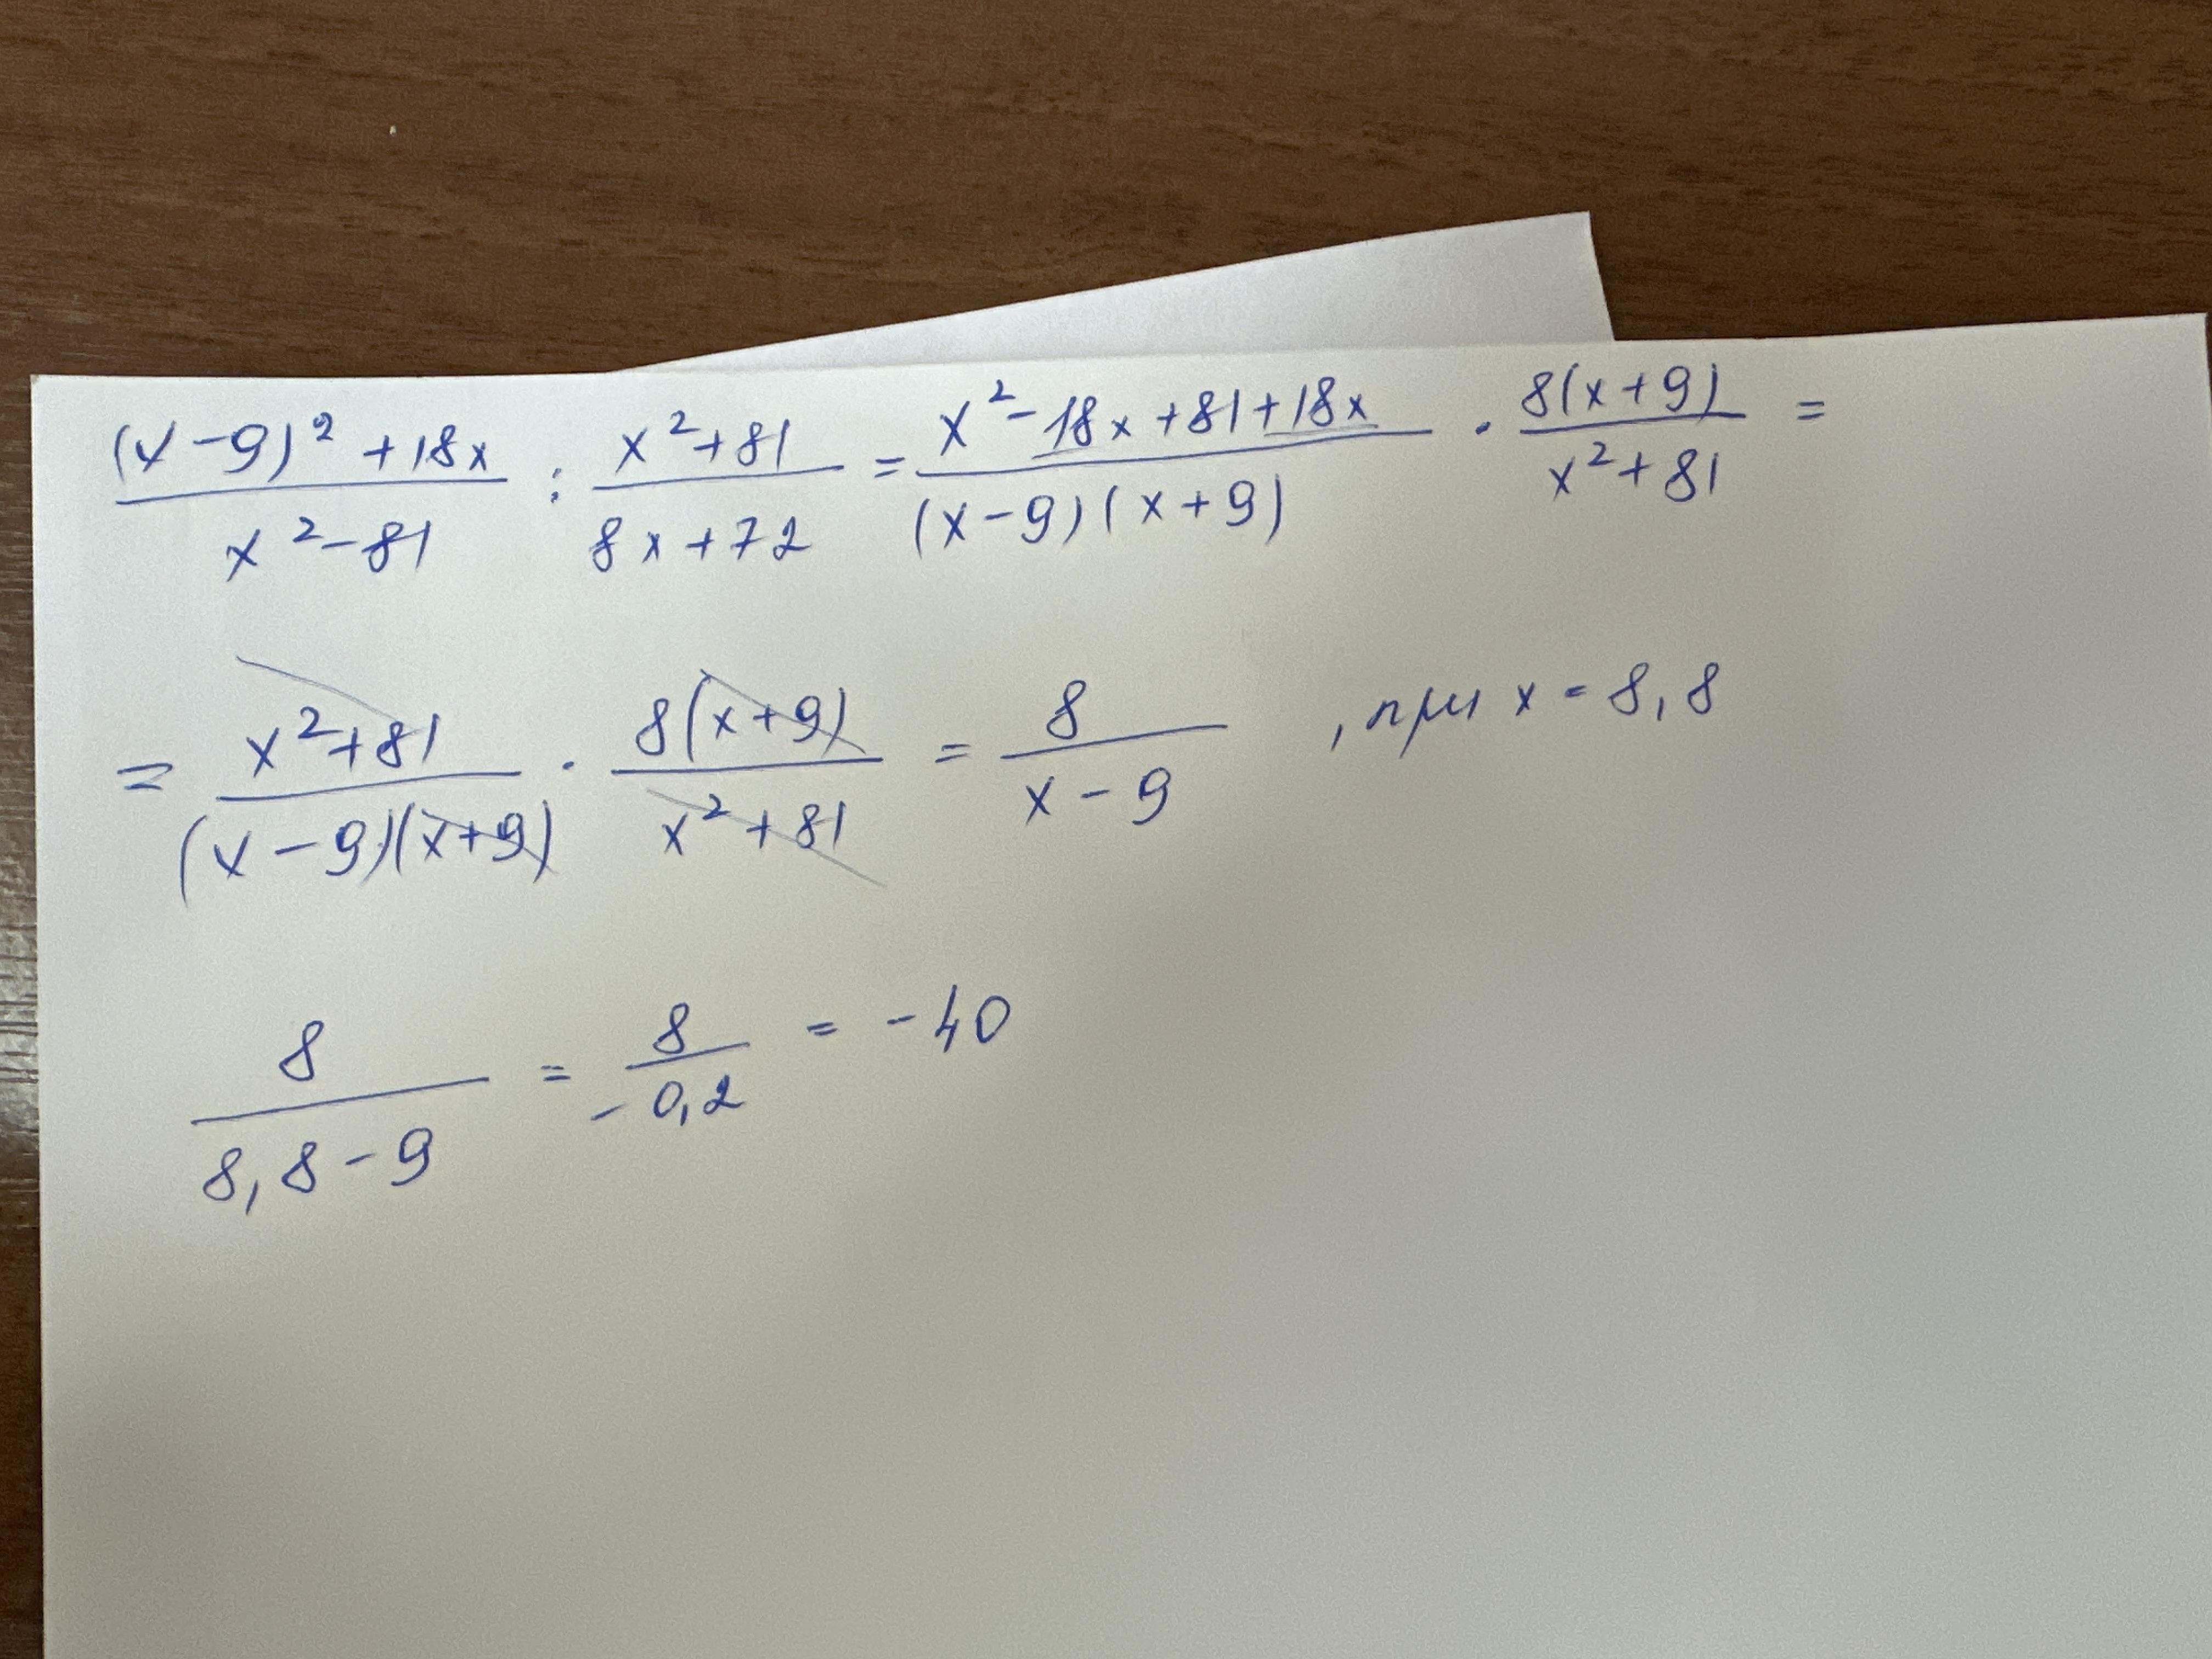 ((x-9)² + 18x)/(x² - 81) : (x² + 81)/(8x + 72) = (x² - 18x + 81 + 18x)/((x - 9)(x + 9)) · 8(x + 9)/(x² + 81) =
= (x² + 81)/((x - 9)(x + 9)) · 8(x + 9)/(x² + 81) = 8/(x - 9) , при x = 8,8
8/(8,8 - 9) = 8/(-0,2) = -40